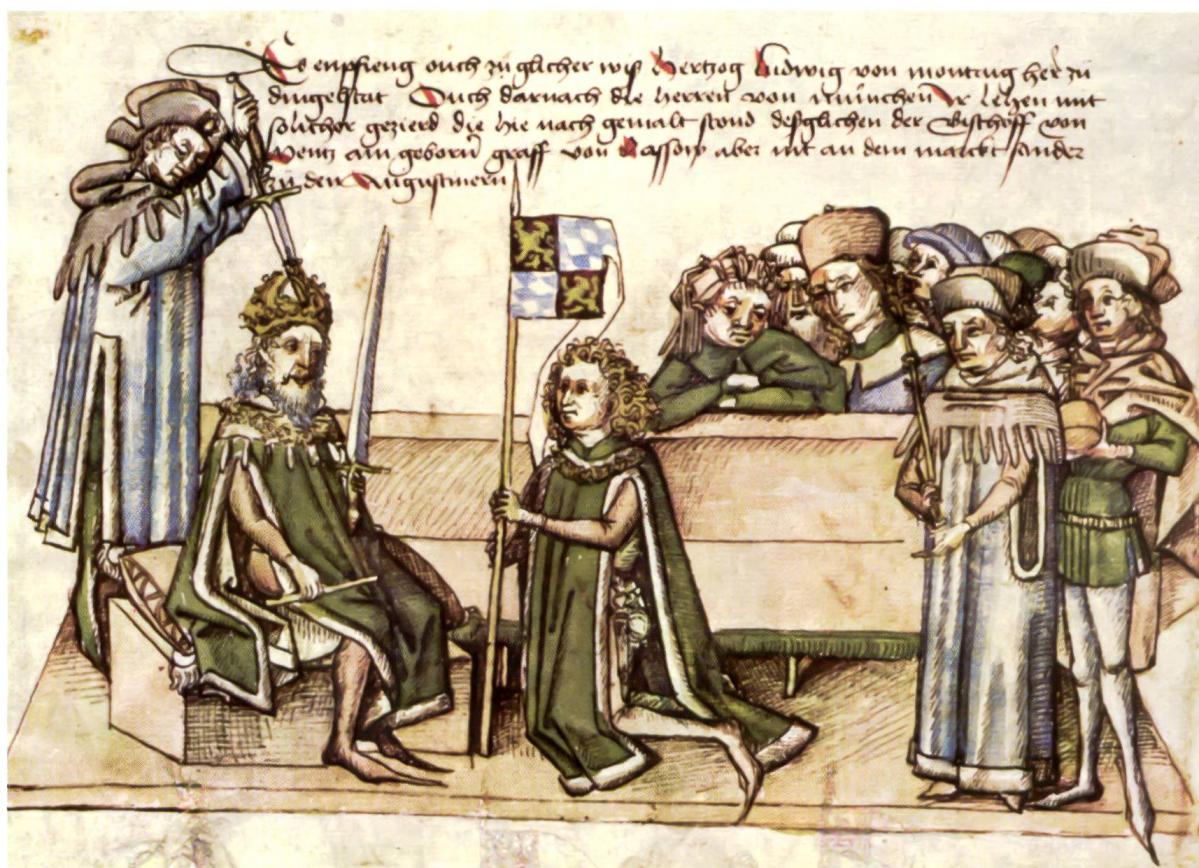 Es enpfieng ouch zů glicher wiß Hertzog Ludwig von montaug her zů
dingelstat Ouch darnach die herren von münchen Ir lehen mit
sölicher gezierd die hie nach gemalt stond deßglichen der Bischoff von
Mentz ain geborn graff von Nassow aber nit an dem marckt sunder
zů den Augustinern